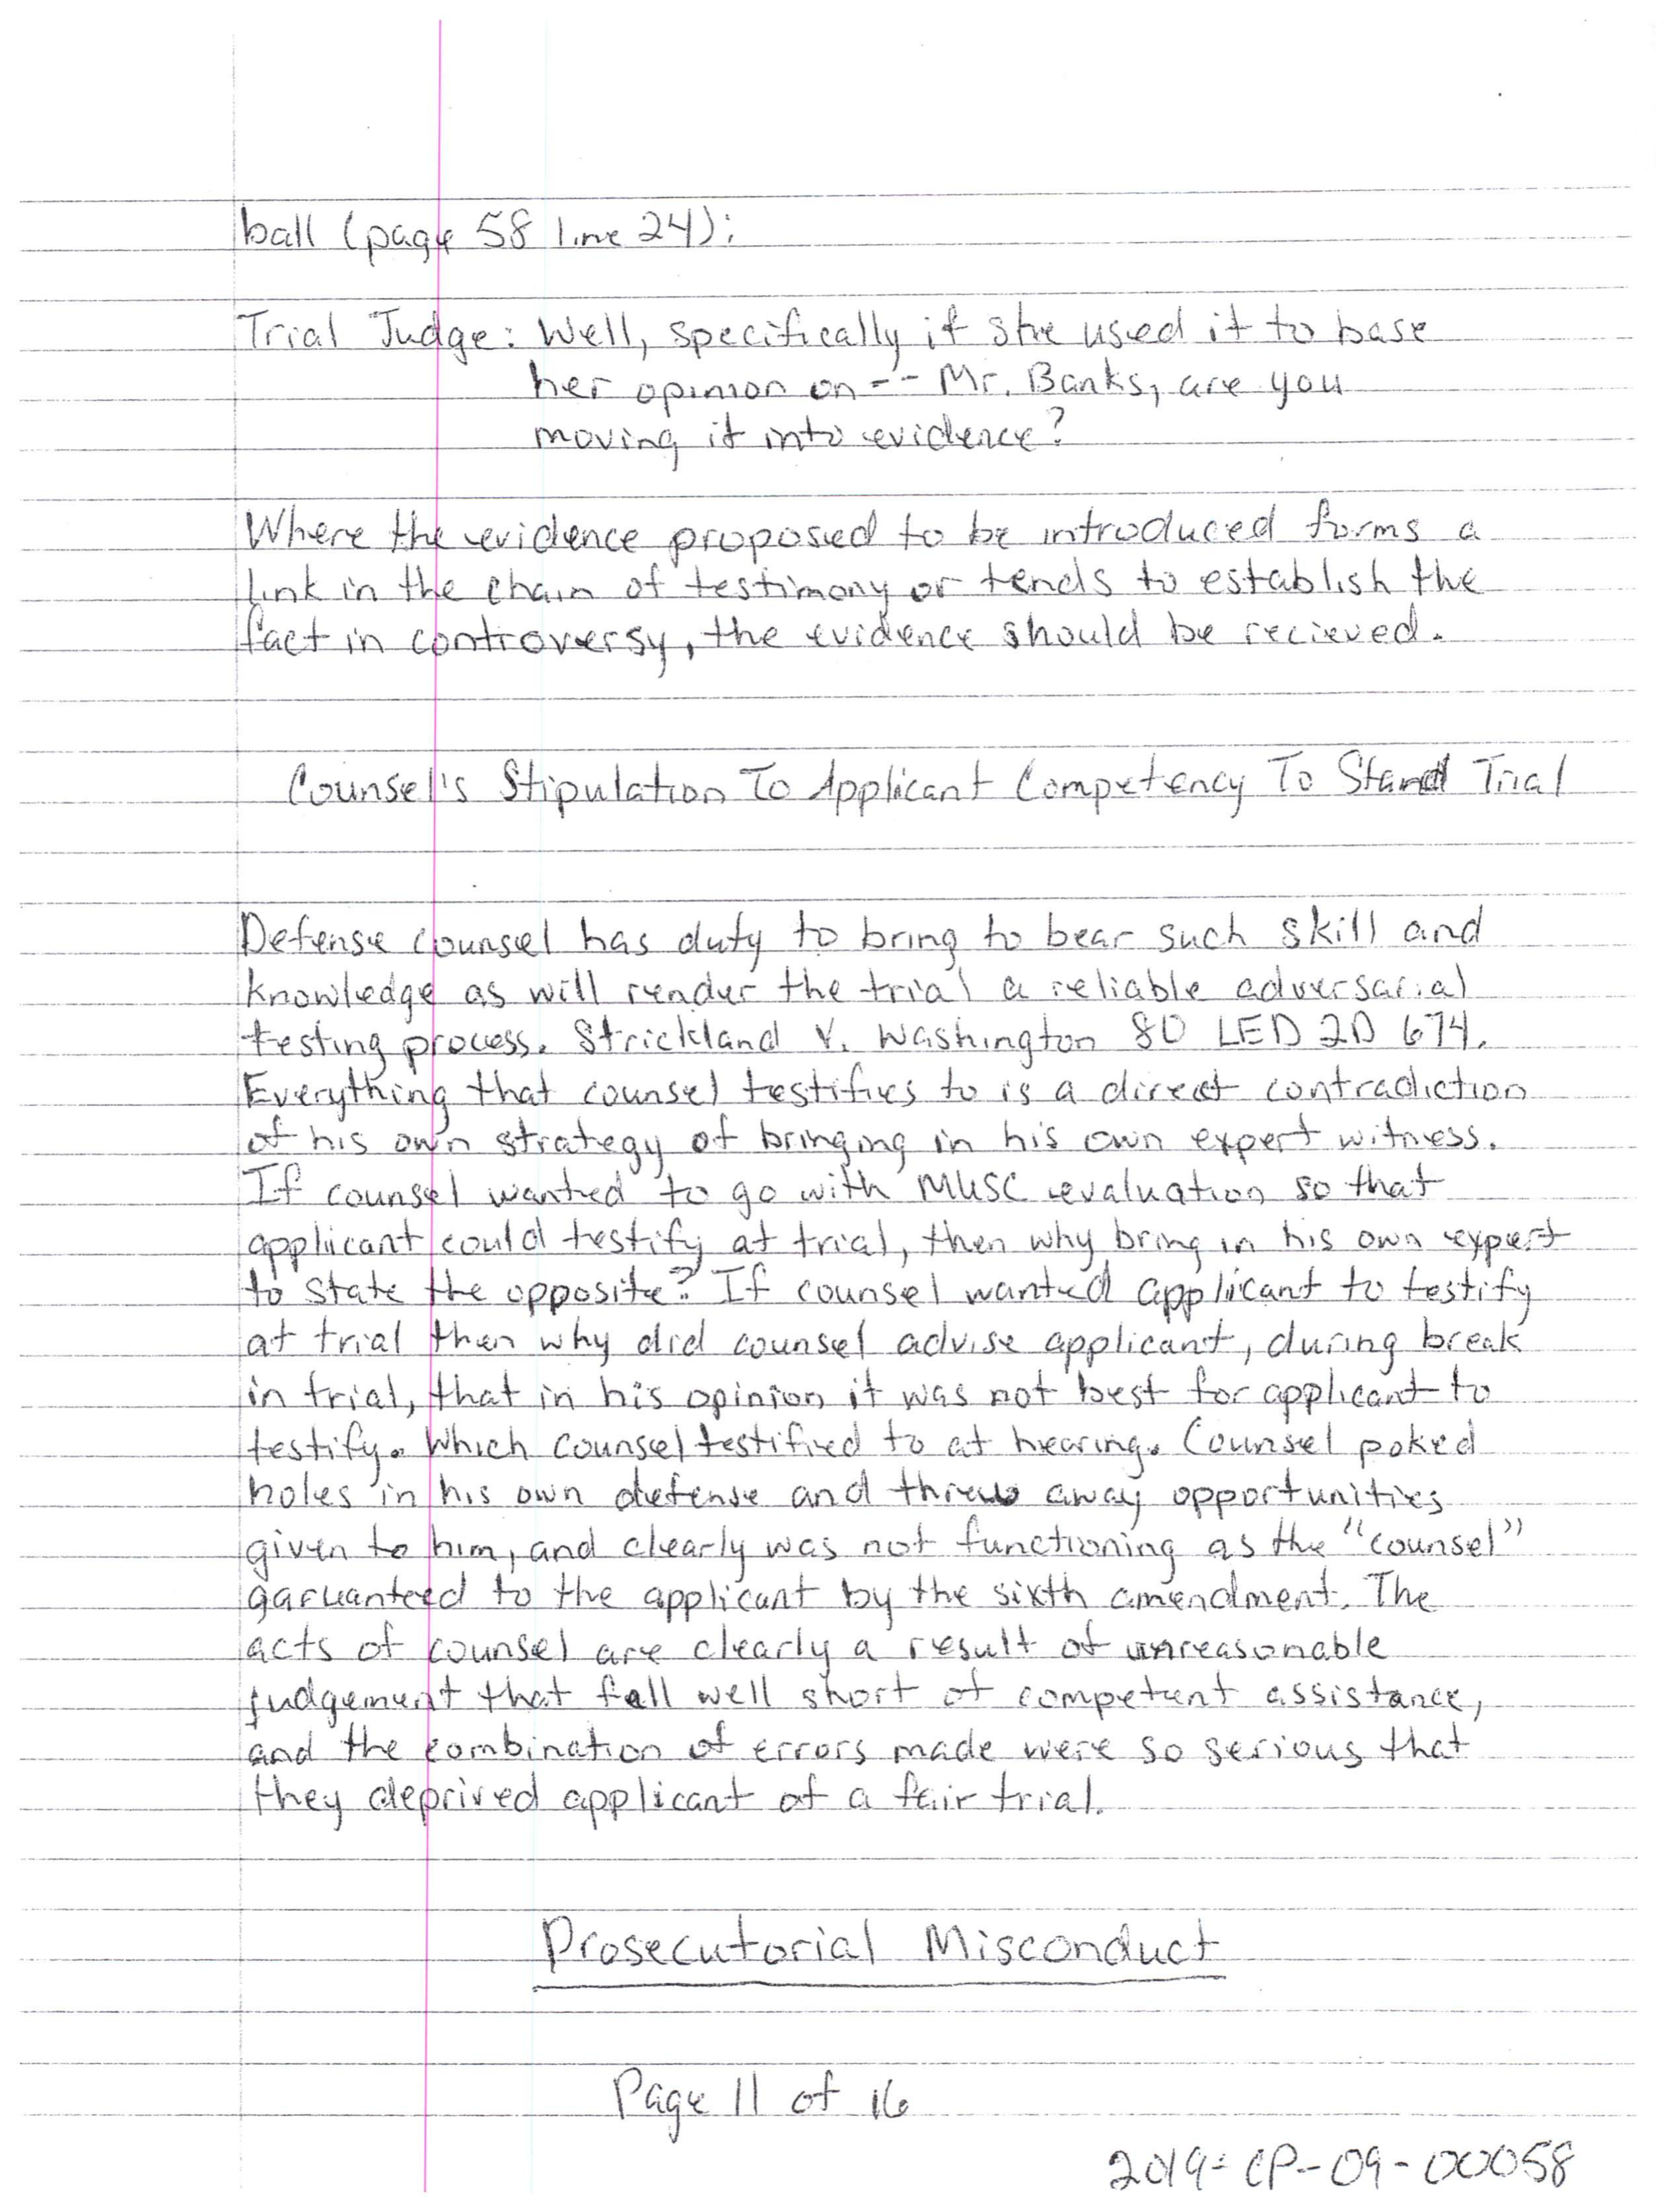 ball (page 58 line 24):
Trial Judge: Well, specifically if she used it to base
her opinion on -- Mr. Banks, are you
moving it into evidence?
Where the evidence proposed to be introduced forms a
link in the chain of testimony or tends to establish the
fact in controversy, the evidence should be recieved.
Counsel's Stipulation To Applicant Competency To Stand Trial
Defense counsel has duty to bring to bear such skill and
knowledge as will render the trial a reliable adversarial
testing process. Strickland V. Washington 80 LED 2D 674.
Everything that counsel testifies to is a direct contradiction
of his own strategy of bringing in his own expert witness.
If counsel wanted to go with MUSC evaluation so that
applicant could testify at trial, then why bring in his own expert
to state the opposite? If counsel wanted applicant to testify
at trial then why did counsel advise applicant, during break
in trial, that in his opinion it was not best for applicant to
testify. Which counsel testified to at hearing. Counsel poked
holes in his own defense and threw away opportunities
given to him, and clearly was not functioning as the "counsel"
garuanteed to the applicant by the sixth amendment. The
acts of counsel are clearly a result of unreasonable
judgement that fell well short of competent assistance,
and the combination of errors made were so serious that
they deprived applicant of a fair trial.
Prosecutorial Misconduct
Page 11 of 16
2019-CP-09-00058